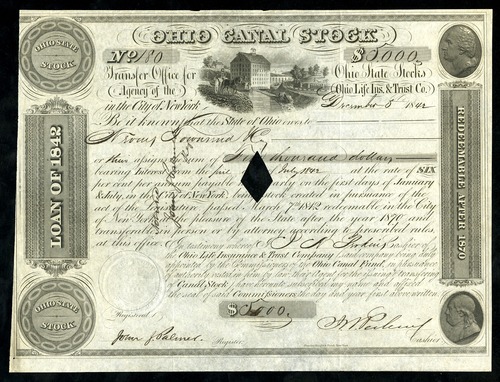 OHIO CANAL STOCK
OHIO STATE STOCK.
No 180
$5000
Transfer Office for Ohio State Stocks
Agency of the Ohio Life Ins. & Trust Co.
in the City of New York December 5 1842
Be it known that the State of Ohio owes to
Nevins Townsend & Co
or their assigns the sum of Five thousand dollars
bearing Interest from the first of July 1842 at the rate of SIX
per cent per annum payable half yearly on the first days of January
& July, in the City of New York being stock created in pursuance of the
act of the Legislature passed March 7th 1842 redeemable in the City
of New York at the pleasure of the State after the year 1870 and
transferable in person or by attorney according to prescribed rules,
at this office. In testimony whereof I, Cashier of
the Ohio Life Insurance & Trust Company said company being duly
appointed by the Commissioners of the Ohio Canal Fund,
Canal Stock have hereunto subscribed my name and affixed
the seal of said Commissioners the day and year first above written
LOAN OF 1842
REDEEMABLE AFTER 1870
OHIO STATE STOCK
$5000.
Registered
John J. Palmer.
Register
Cashier